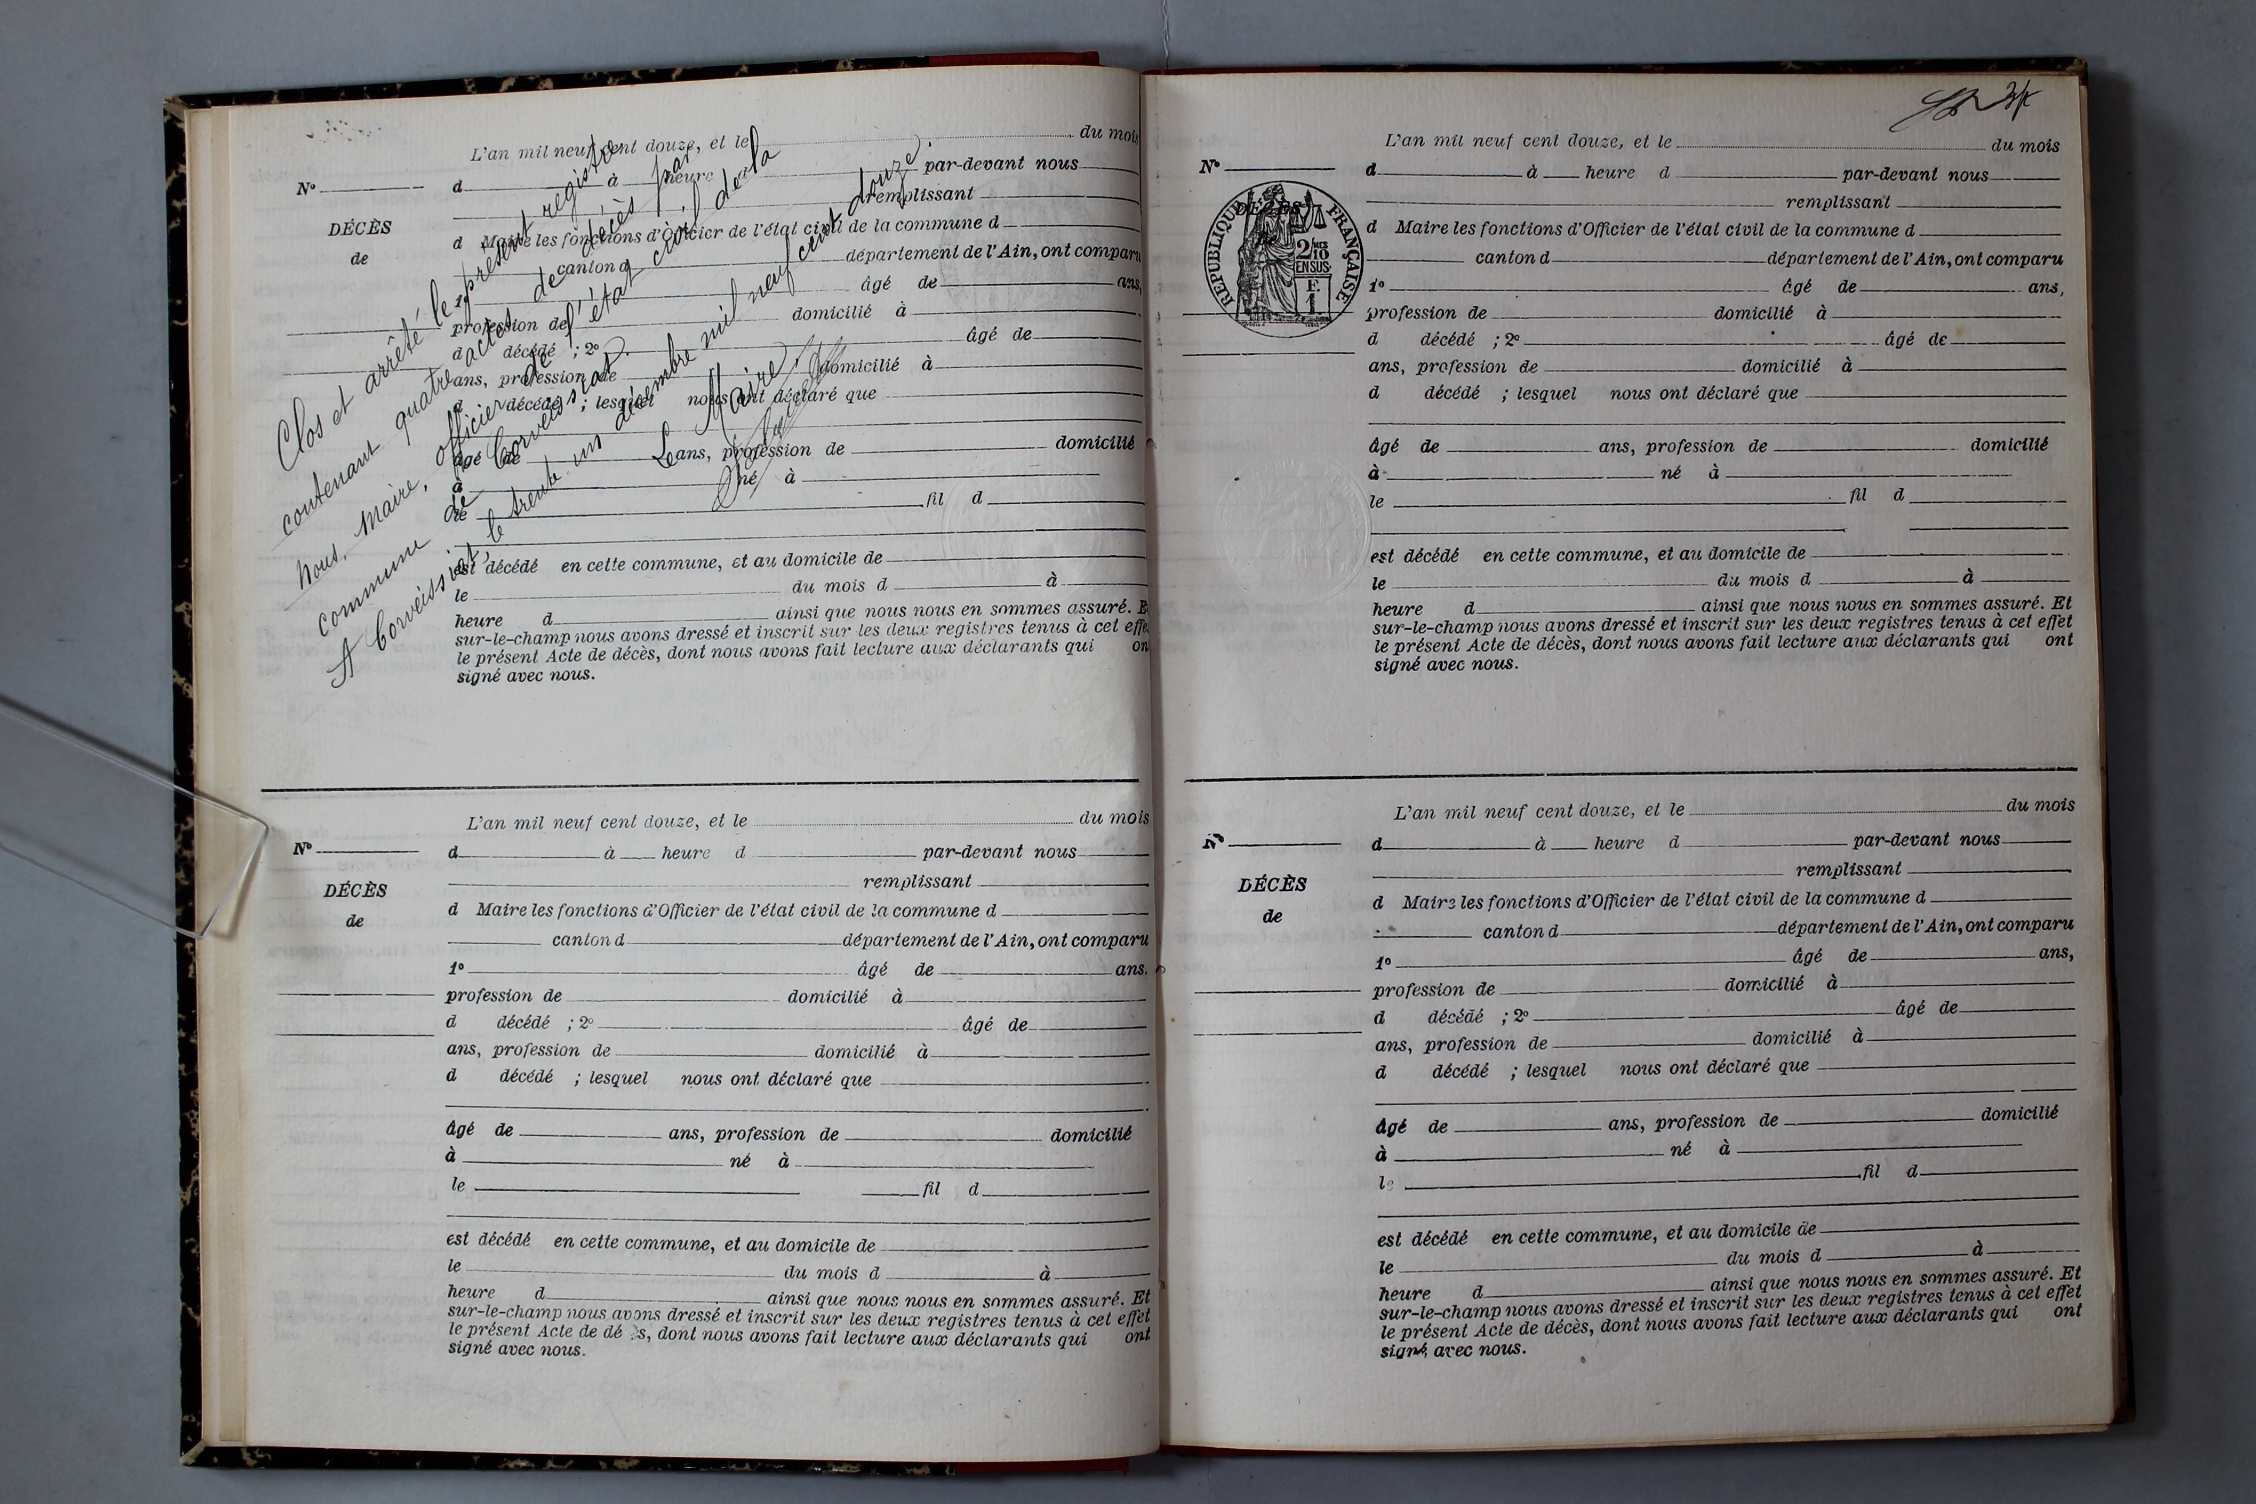 L'an mil neuf cent douze, et le du mois
N° d à heure par-devant nous
DÉCÈS remplissant
de d Maire les fonctions d'Officier de l'état civil de la commune d
canton d département de l'Ain, ont comparu
1° âgé de ans,
profession de domicilié à
d décédé ; 2° âgé de
ans, profession de domicilié à
d décédé ; lesquel nous ont déclaré que
âgé de ans, profession de domicilié
à né à
le fil d
est décédé en cette commune, et au domicile de
le du mois d à
heure d ainsi que nous nous en sommes assuré. E
sur-le-champ nous avons dressé et inscrit sur les deux registres tenus à cet effe
le présent Acte de décès, dont nous avons fait lecture aux déclarants qui on
signé avec nous.
Clos et arrêté le présent registre
contenant quatre actes de décès par
nous, Maire, officier de l'état civil de la
commune de Corveissiat.
A Corveissiat, le trente un décembre mil neuf cent douze.
Le Maire,
L'an mil neuf cent douze, et le du mois
N° d à heure d par-devant nous
DÉCÈS remplissant
de d Maire les fonctions d'Officier de l'état civil de la commune d
canton d département de l'Ain, ont comparu
1° âgé de ans.
profession de domicilié à
d décédé ; 2° âgé de
ans, profession de domicilié à
d décédé ; lesquel nous ont déclaré que
âgé de ans, profession de domicilié
à né à
le fil d
est décédé en cette commune, et au domicile de
le du mois d à
heure d ainsi que nous nous en sommes assuré. Et
sur-le-champ nous avons dressé et inscrit sur les deux registres tenus à cet effet
le présent Acte de dé s, dont nous avons fait lecture aux déclarants qui ont
signé avec nous.
L'an mil neuf cent douze, et le du mois
N° d à heure d par-devant nous
DÉCÈS remplissant
RÉPUBLIQUE FRANÇAISE
2/10 EN SUS
F. 1
d Maire les fonctions d'Officier de l'état civil de la commune d
canton d département de l'Ain, ont comparu
1° âgé de ans,
profession de domicilié à
d décédé ; 2° âgé de
ans, profession de domicilié à
d décédé ; lesquel nous ont déclaré que
âgé de ans, profession de domicilié
à né à
le fil d
est décédé en cette commune, et au domicile de
le du mois d à
heure d ainsi que nous nous en sommes assuré. Et
sur-le-champ nous avons dressé et inscrit sur les deux registres tenus à cet effet
le présent Acte de décès, dont nous avons fait lecture aux déclarants qui ont
signé avec nous.
L'an mil neuf cent douze, et le du mois
N° d à heure d par-devant nous
DÉCÈS remplissant
de d Maire les fonctions d'Officier de l'état civil de la commune d
canton d département de l'Ain, ont comparu
1° âgé de ans,
profession de domicilié à
d décédé ; 2° âgé de
ans, profession de domicilié à
d décédé ; lesquel nous ont déclaré que
âgé de ans, profession de domicilié
à né à
le fil d
est décédé en cette commune, et au domicile de
le du mois d à
heure d ainsi que nous nous en sommes assuré. Et
sur-le-champ nous avons dressé et inscrit sur les deux registres tenus à cet effet
le présent Acte de décès, dont nous avons fait lecture aux déclarants qui ont
signé avec nous.